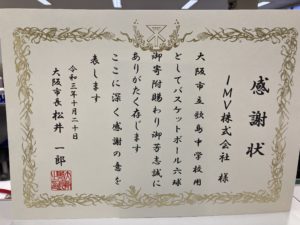 感謝状
IMV株式会社 様
大阪市立歌島中学校用
としてバスケットボール六球
御寄附賜わり御芳志に
ありがたく存じます
ここに深く感謝の意を
表します
令和三年十月二十日
大阪市長 松井 一郎